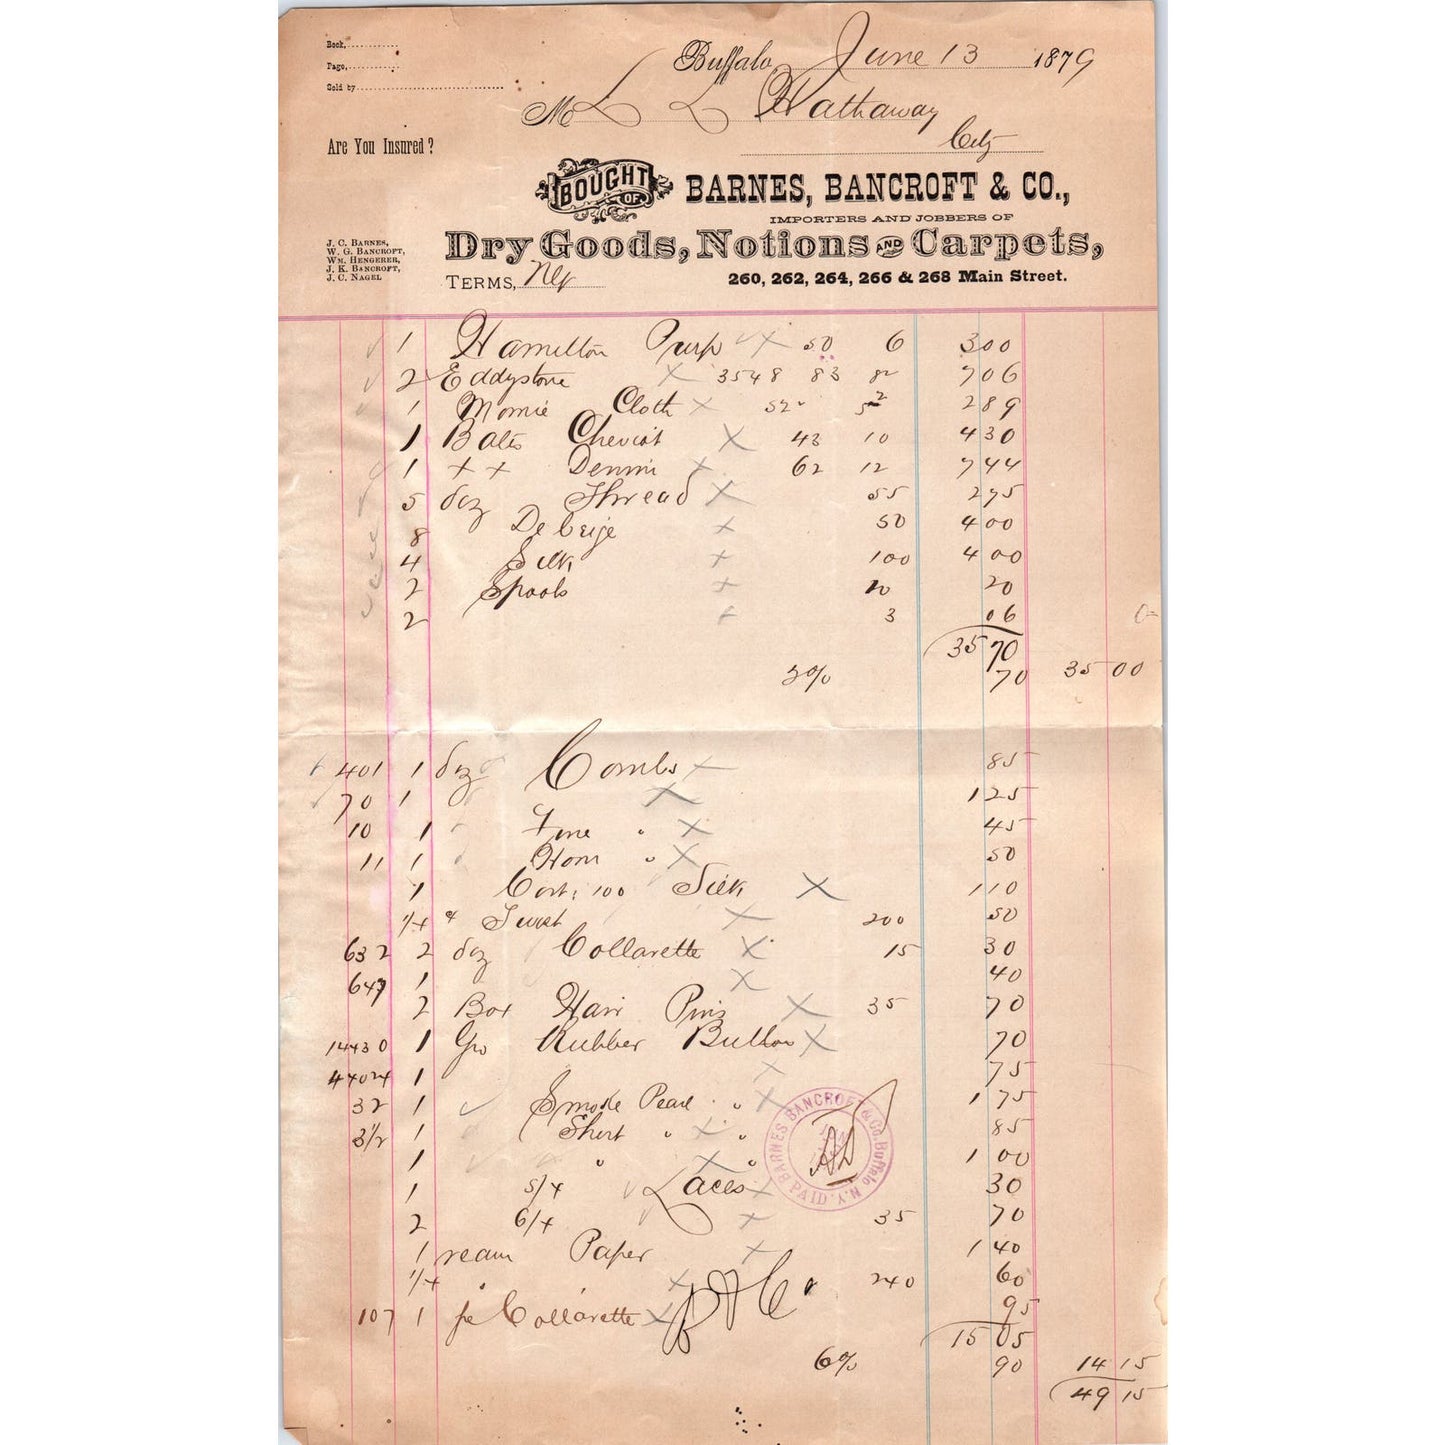 Book,
Page,
Sold by
Buffalo, June 13 1879
M L L Hathaway
City
Are You Insured?
BOUGHT OF BARNES, BANCROFT & CO.,
IMPORTERS AND JOBBERS OF
Dry Goods, Notions AND Carpets,
J. C. BARNES,
W. G. BANCROFT,
WM. HENGERER,
J. K. BANCROFT,
J. C. NAGEL
TERMS,
260, 262, 264, 266 & 268 Main Street.
1 Hamilton 50 6 3 00
2 Eddystone 3548 83 8½ 7 06
1 Momie Cloth 52² 5½ 2 89
1 Bates Cheviot 43 10 4 30
1 x x Denim 62 12 7 44
5 doz Thread 55 2 75
8 De beige 50 4 00
4 Silk 100 4 00
2 Spools 10 20
2 3 06
35 70
2% 70 35 00
401 1 doz Combs 85
70 1 1 25
10 1 Fine " 45
11 1 Horn " 50
1 100 Silk 1 10
1/4 " Twist 200 50
632 2 doz Collarette 15 30
647 1 40
2 Box Hair Pins 35 70
14430 1 Gro Rubber Button 70
44024 1 75
32 1 Smoke Pearl " 1 75
3½ 1 Shirt " " 85
1 " " 1 00
1 5/4 Laces 30
2 6/4 35 70
1 ream Paper 1 40
1/4 " 240 60
107 1 Collarette 95
15 05
6% 90 14 15
49 15
BARNES BANCROFT & CO. Buffalo N.Y. PAID